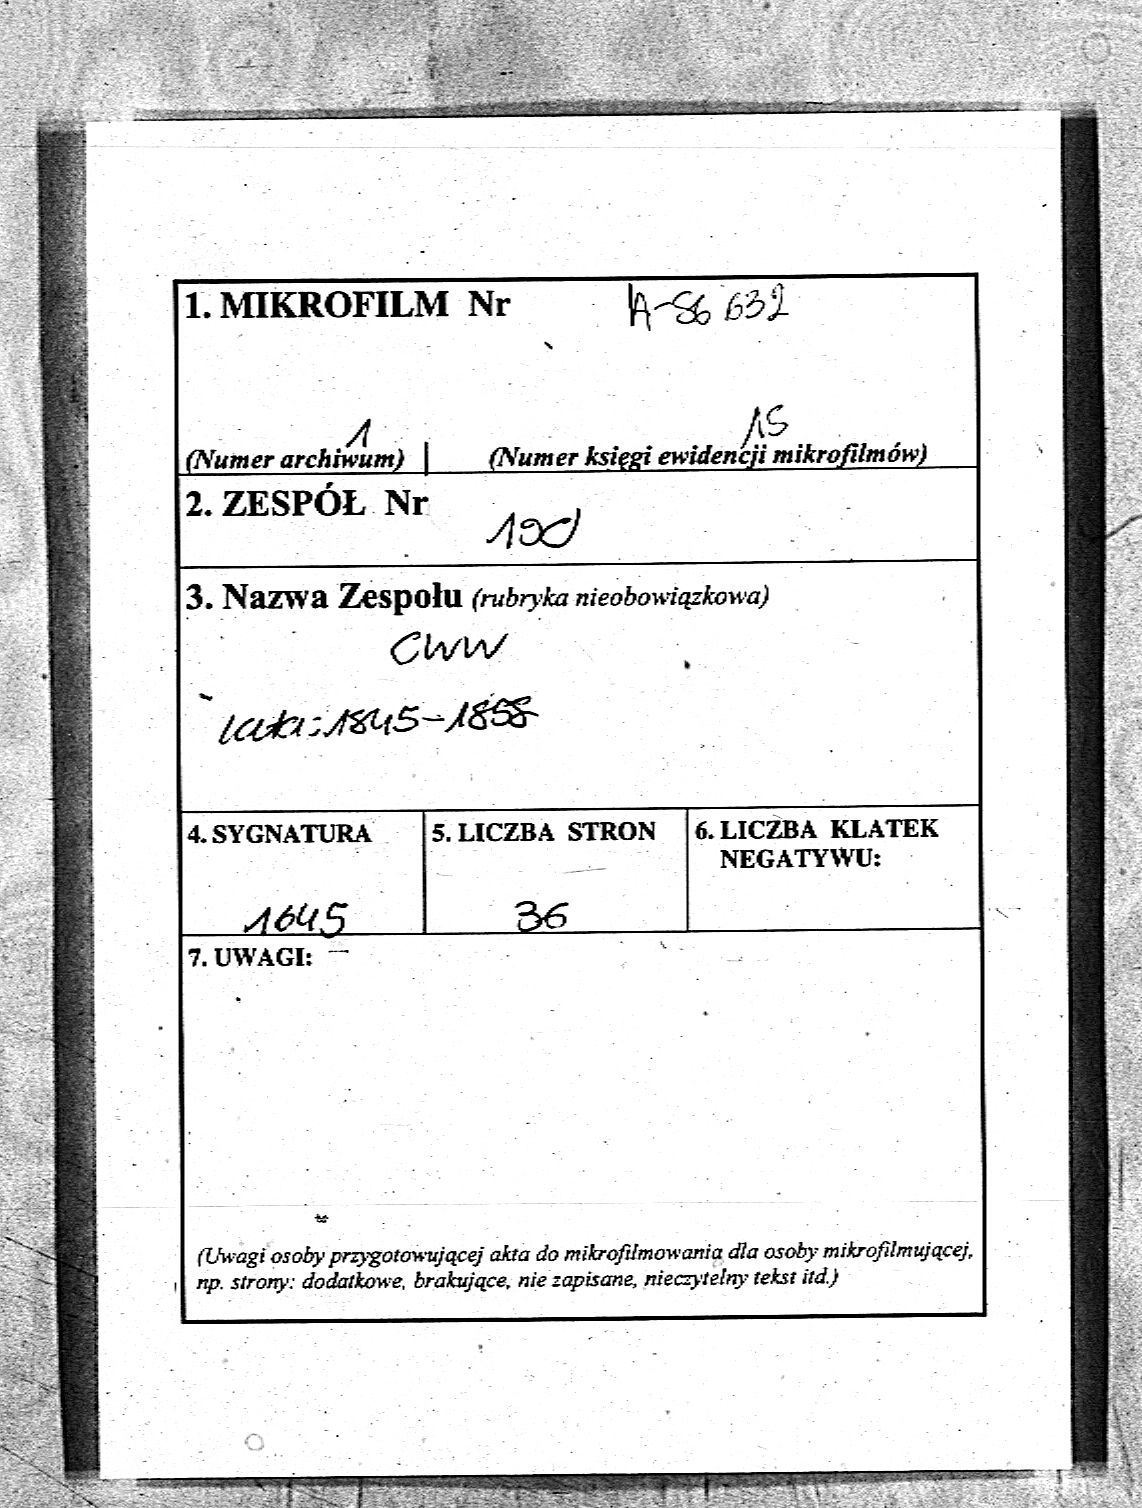 1. MIKROFILM Nr A-86 632
1 15
(Numer archiwum) | (Numer księgi ewidencji mikrofilmów)
2. ZESPÓŁ Nr
190
3. Nazwa Zespołu (rubryka nieobowiązkowa)
CWW
lata: 1845-1858
4. SYGNATURA 5. LICZBA STRON 6. LICZBA KLATEK
NEGATYWU:
1645 36
7. UWAGI:
(Uwagi osoby przygotowującej akta do mikrofilmowania dla osoby mikrofilmującej,
np. strony: dodatkowe, brakujące, nie zapisane, nieczytelny tekst itd.)